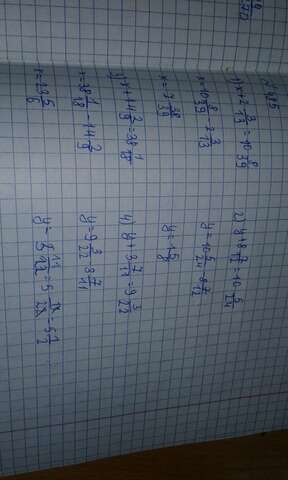 485
1) x+2 3/13 = 10 8/39
x=10 8/39 - 2 3/13
x=7 38/39
3) x+14 2/9 = 38 1/18
x=38 1/18 - 14 2/9
x=23 5/6
2) y+8 7/12 = 10 5/24
y=10 5/24 - 8 7/12
y=1 5/8
4) y+3 7/11 = 9 3/22
y=9 3/22 - 3 7/11
y=5 11/22 = 5 1/2